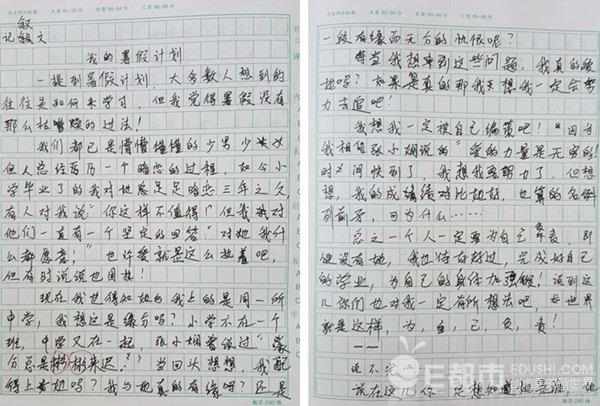 叙
记叙文
我的暑假计划
一提到暑假计划，大多数人想到的
往往是如何来学习，但我觉得暑假没有
那么枯燥的过法！
我们都已是懵懵懂懂的少男少女
但人总经历一个暗恋的过程，如今小
学毕业了的我对她足足暗恋三年之久，
有人对我说“你这样不值得！”但我对
他们一直有一个坚定的回答“对她我什
么都愿意；”也许爱就是这么执着吧，
但有时说说也图
现在我也得知她与我上的是同一所
中学，我想这是缘分吗？小学不在一个
班，中学又在一起，张小娴曾说过“缘
分总是姗姗来迟？”当回头想想，我配
得上她吗？我与她真的有缘吗？还是
一段有缘而无分的仇恨呢？
每当我想来到这些问题，我真的爱
她吗？如果是真的那我想我一定会努
力去追吧！
我想我一定被自己编策吧！因为
我相信张小娴说的“爱的力量是无穷的！
时之间快到了，我想我要努力了，但想
想，我的成绩对比她，也算的名列
列前茅，因为什么……
总之一个人一定要为自己，即
使没有她，我也待在好过，完成好自己
的学业，为自己的身体加强锻！说到这
儿你们也对我一定有所想法吧，世界
就是这样，为，自，己，负，责！
——
E都市
EDUSHI.COM